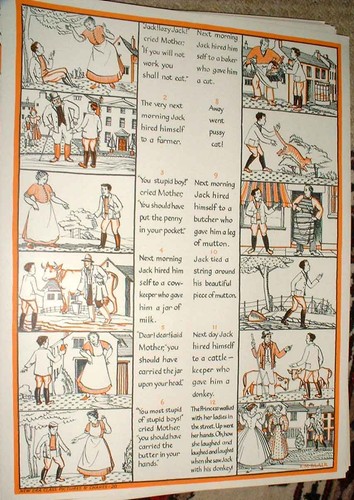 "Jack! lazy Jack!"
cried Mother,
"If you will not
work you
shall not eat."
2
The very next
morning Jack
hired himself
to a farmer.
3
"You stupid boy!"
cried Mother,
"You should have
put the penny
in your pocket."
4
Next morning
Jack hired him
self to a cow-
keeper who gave
him a jar of
milk.
5
"Dear! dear!" said
Mother, "you
should have
carried the jar
upon your head."
6
"You most stupid
of stupid boys!"
cried Mother,
"you should have
carried the
butter in your
hands."
Next morning
Jack hired him
self to a baker
who gave him
a cat.
8
Away
went
pussy
cat!
9
Next morning
Jack hired
himself to a
butcher who
gave him a leg
of mutton.
10
Jack tied a
string around
his beautiful
piece of mutton.
11
Next day Jack
hired himself
to a cattle-
keeper who
gave him a
donkey.
12
The Princess walked
with her ladies in
the street. Up went
her hands. Oh, how
she laughed and
laughed and laughed
when she saw Jack
with his donkey!